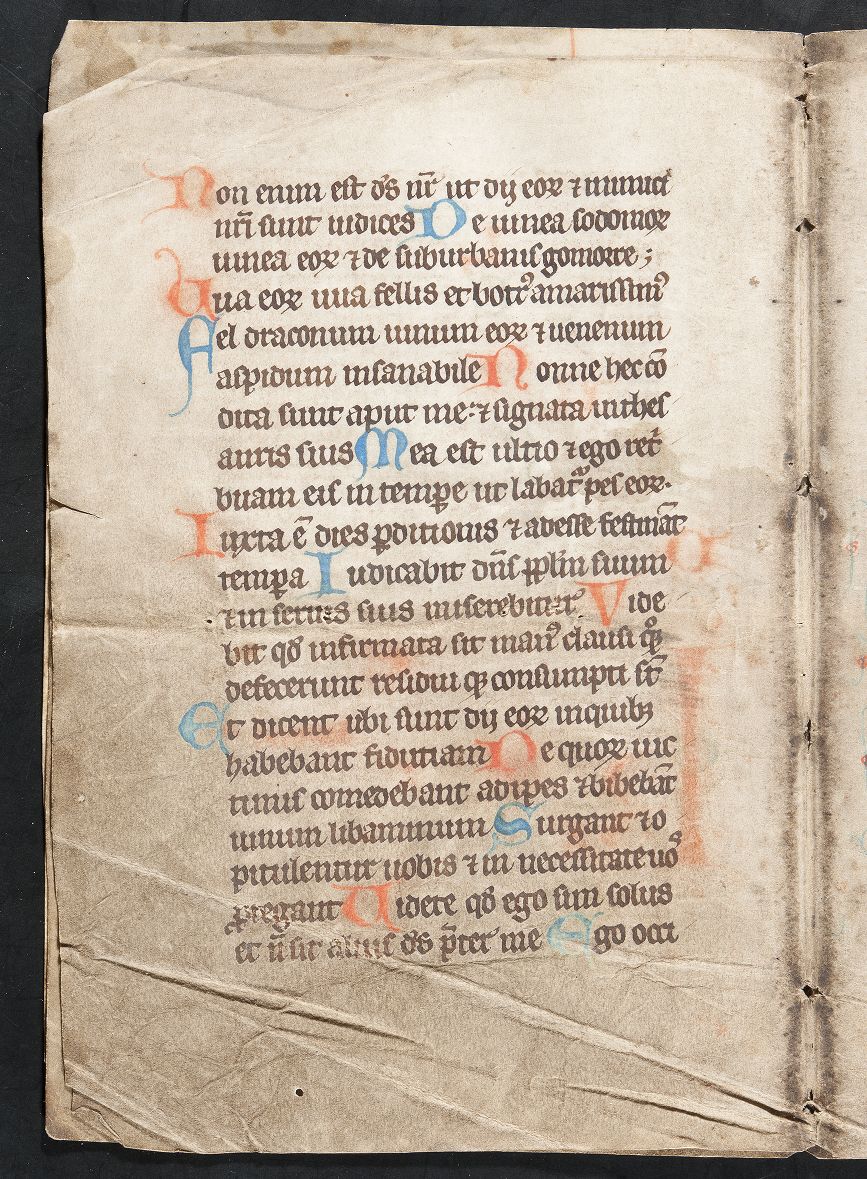 Non enim est dꝰs nr̄ ut dij eoꝝ ⁊ inimici
nr̄i sunt iudices De uinea sodomoꝝ
uinea eoꝝ ⁊ de suburbanis gomorre ;
Uua eoꝝ uua fellis et botrꝰ amarissimꝰ
Fel draconum uinum eoꝝ ⁊ uenenum
aspidum insanabile Nonne hec cō
dita sunt aput me ⁊ signata in thes
auris suis Mea est ultio ⁊ ego ret̉
buam eis in temꝑe ut labat̉ pes eoꝝ.
Iuxta ē dies ꝑditionis ⁊ adesse festināt
temꝑa Iudicabit dn̄s ꝓplm̄ suum
⁊ in seruis suis miserebitur Vide
bit qđ infirmata sit manꝰ clausi qꝫ
defecerunt residui qꝫ consumpti st̄
Et dicent ubi sunt dij eoꝝ in quibꝫ
habebant fiduciam De quoꝝ uic
timis comedebant adipes ⁊ bibebāt
uinum libaminum Surgant ⁊ o
pitulentur uobis ⁊ in necessitate uoꝰ
ꝓtegant Uidete qđ ego sim solus
et n̄ sit alius dꝰs p̄ter me Ego occi